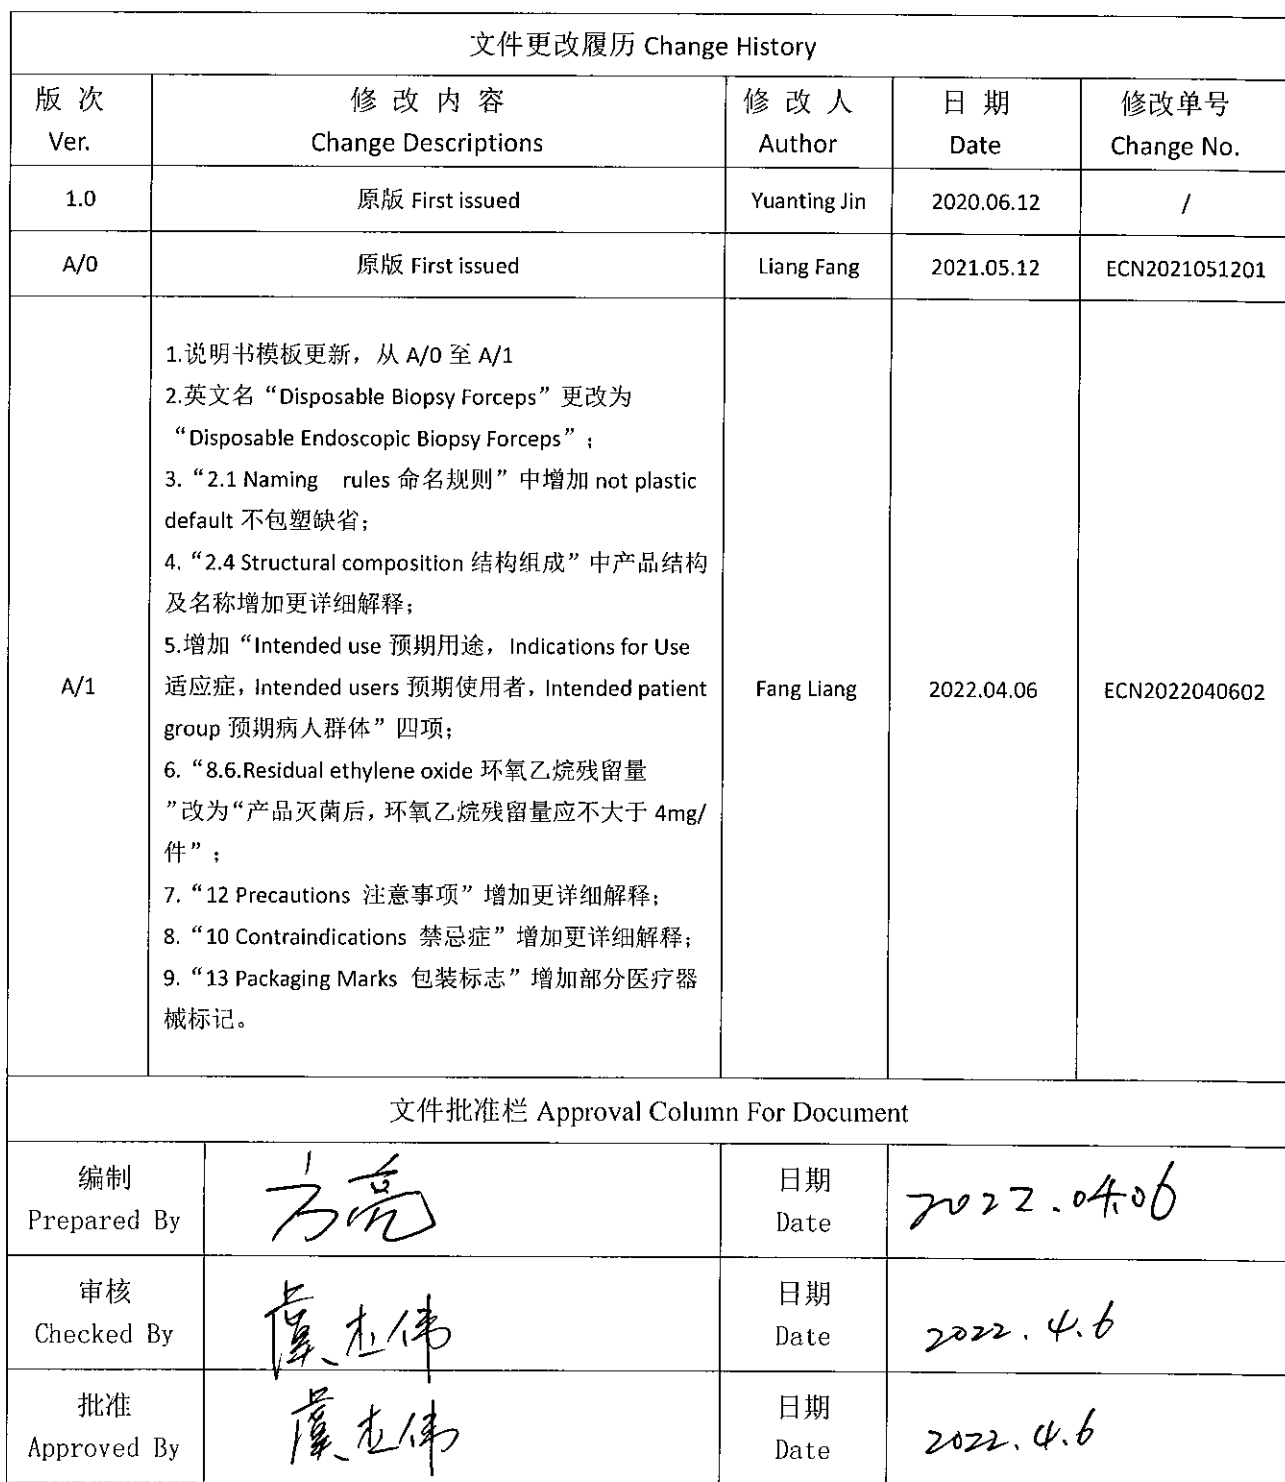 文件更改履历 Change History
版 次 修 改 内 容 修 改 人 日 期 修改单号
Ver. Change Descriptions Author Date Change No.
1.0 原版 First issued Yuanting Jin 2020.06.12 /
A/0 原版 First issued Liang Fang 2021.05.12 ECN2021051201
1.说明书模板更新，从 A/0 至 A/1
2.英文名“Disposable Biopsy Forceps”更改为
“Disposable Endoscopic Biopsy Forceps”；
3.“2.1 Naming rules 命名规则”中增加 not plastic
default 不包塑缺省；
4.“2.4 Structural composition 结构组成”中产品结构
及名称增加更详细解释；
5.增加“Intended use 预期用途，Indications for Use
A/1 适应症，Intended users 预期使用者，Intended patient Fang Liang 2022.04.06 ECN2022040602
group 预期病人群体”四项；
6.“8.6.Residual ethylene oxide 环氧乙烷残留量
”改为“产品灭菌后，环氧乙烷残留量应不大于 4mg/
件”；
7.“12 Precautions 注意事项”增加更详细解释；
8.“10 Contraindications 禁忌症”增加更详细解释；
9.“13 Packaging Marks 包装标志”增加部分医疗器
械标记。
文件批准栏 Approval Column For Document
编制 日期
Prepared By 方亮 Date 2022.04.06
审核 日期
Checked By 虞杰伟 Date 2022.4.6
批准 日期
Approved By 虞杰伟 Date 2022.4.6